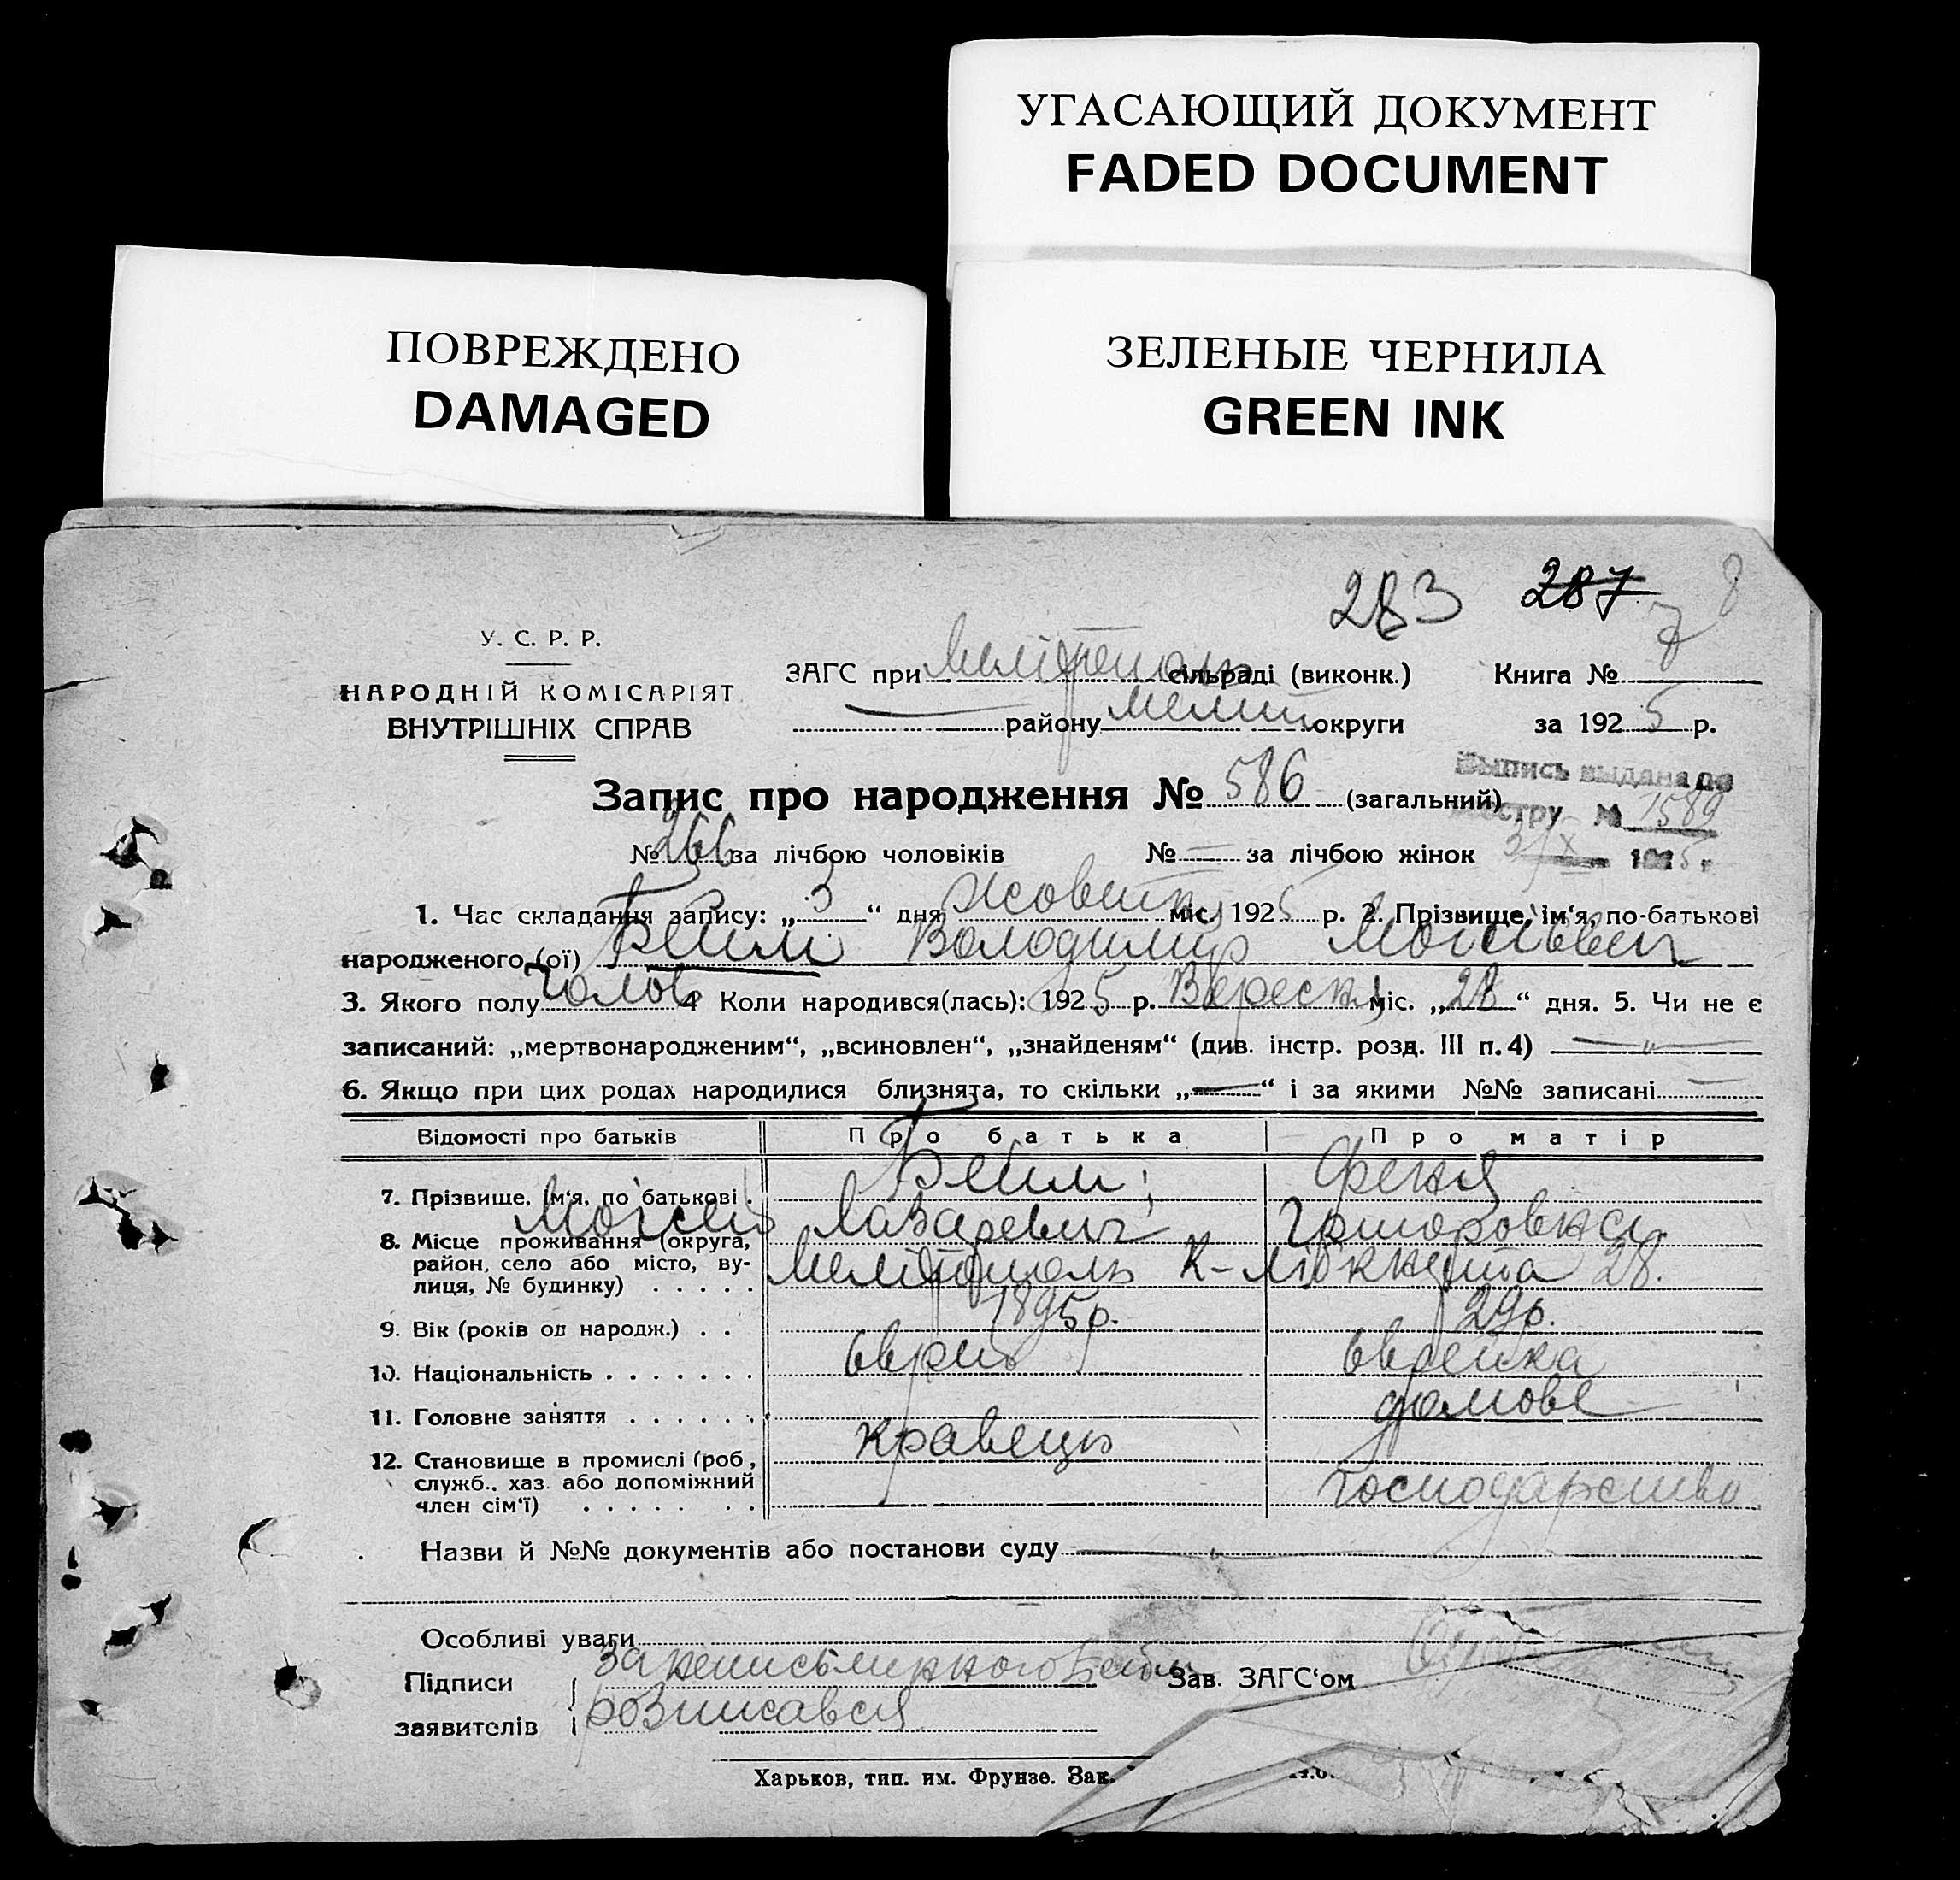 УГАСАЮЩИЙ ДОКУМЕНТ
FADED DOCUMENT
ПОВРЕЖДЕНО
DAMAGED
ЗЕЛЕНЫЕ ЧЕРНИЛА
GREEN INK
283 287 8
7
У. С. Р. Р.
НАРОДНІЙ КОМІСАРІЯТ
ВНУТРІШНІХ СПРАВ
ЗАГС при Мелітополь сільраді (виконк.) Книга №
району Мелит округи за 1925 р.
Запис про народження № 586 (загальний)
Выпись выдана по
реестру № 1589
3/X 1925 г
№ 266 за лічбою чоловіків № — за лічбою жінок
1. Час складання запису: „3“ дня Жовтня міс. 1925 р. 2. Прізвище, ім‘я, по-батькові
народженого (ої) Бейм Володимир Мойсеевич
3. Якого полу чолов 4 Коли народився(лась): 1925 р. Вересня міс. „28“ дня. 5. Чи не є
записаний: „мертвонародженим“, „всиновлен“, „знайденям“ (див. інстр. розд. III п. 4) — „ —
6. Якщо при цих родах народилися близнята, то скільки „—“ і за якими №№ записані —
Відомості про батьків Про батька Про матір
7. Прізвище, ім‘я, по батькові Бейм Феня
Мойсей Лазаревич Григоровна
8. Місце проживання (округа,
район, село або місто, ву-
лиця, № будинку) Мелітополь К-Лібкнехта 28.
9. Вік (років од народж.) 1895р. 29р.
10. Національність еврей еврейка
11. Головне заняття кравець домове
12. Становище в промислі (роб,
служб., хаз. або допоміжний
член сім‘ї) господарство
Назви й №№ документів або постанови суду — „ —
Особливі уваги
Підписи За неписьменного Бейм Зав. ЗАГС‘ом
заявителів розписався
Харьков, тип. им. Фрунзе. Зак.